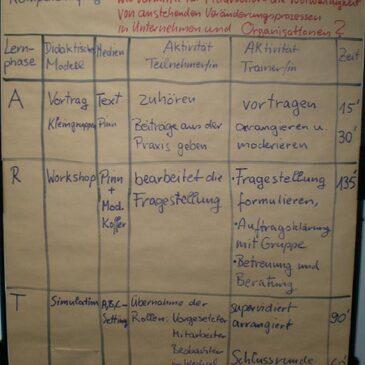 von anstehenden Veränderungsprozessen
in Unternehmen und Organisationen?
Lern-
phase
Didaktische
Modell
Medien
Aktivität
Teilnehmer/in
Aktivität
Trainer/in
Zeit
A
Vortrag
Kleingruppe
Text
Pinn
zuhören
Beiträge aus der
Praxis geben
vortragen
arrangieren u.
moderieren
15'
30'
R
Workshop
Pinn
+
Mod.
Koffer
bearbeitet die
Fragestellung
• Fragestellung
formulieren,
• Auftragsklärung
mit Gruppe
• Betreuung und
Beratung
135'
T
Simulation
A,B,C-
Setting
Übernahme der
Rollen: Vorgesetzter
Mitarbeiter
Beobachter
supervidiert
arrangiert
Schlussrunde
90'